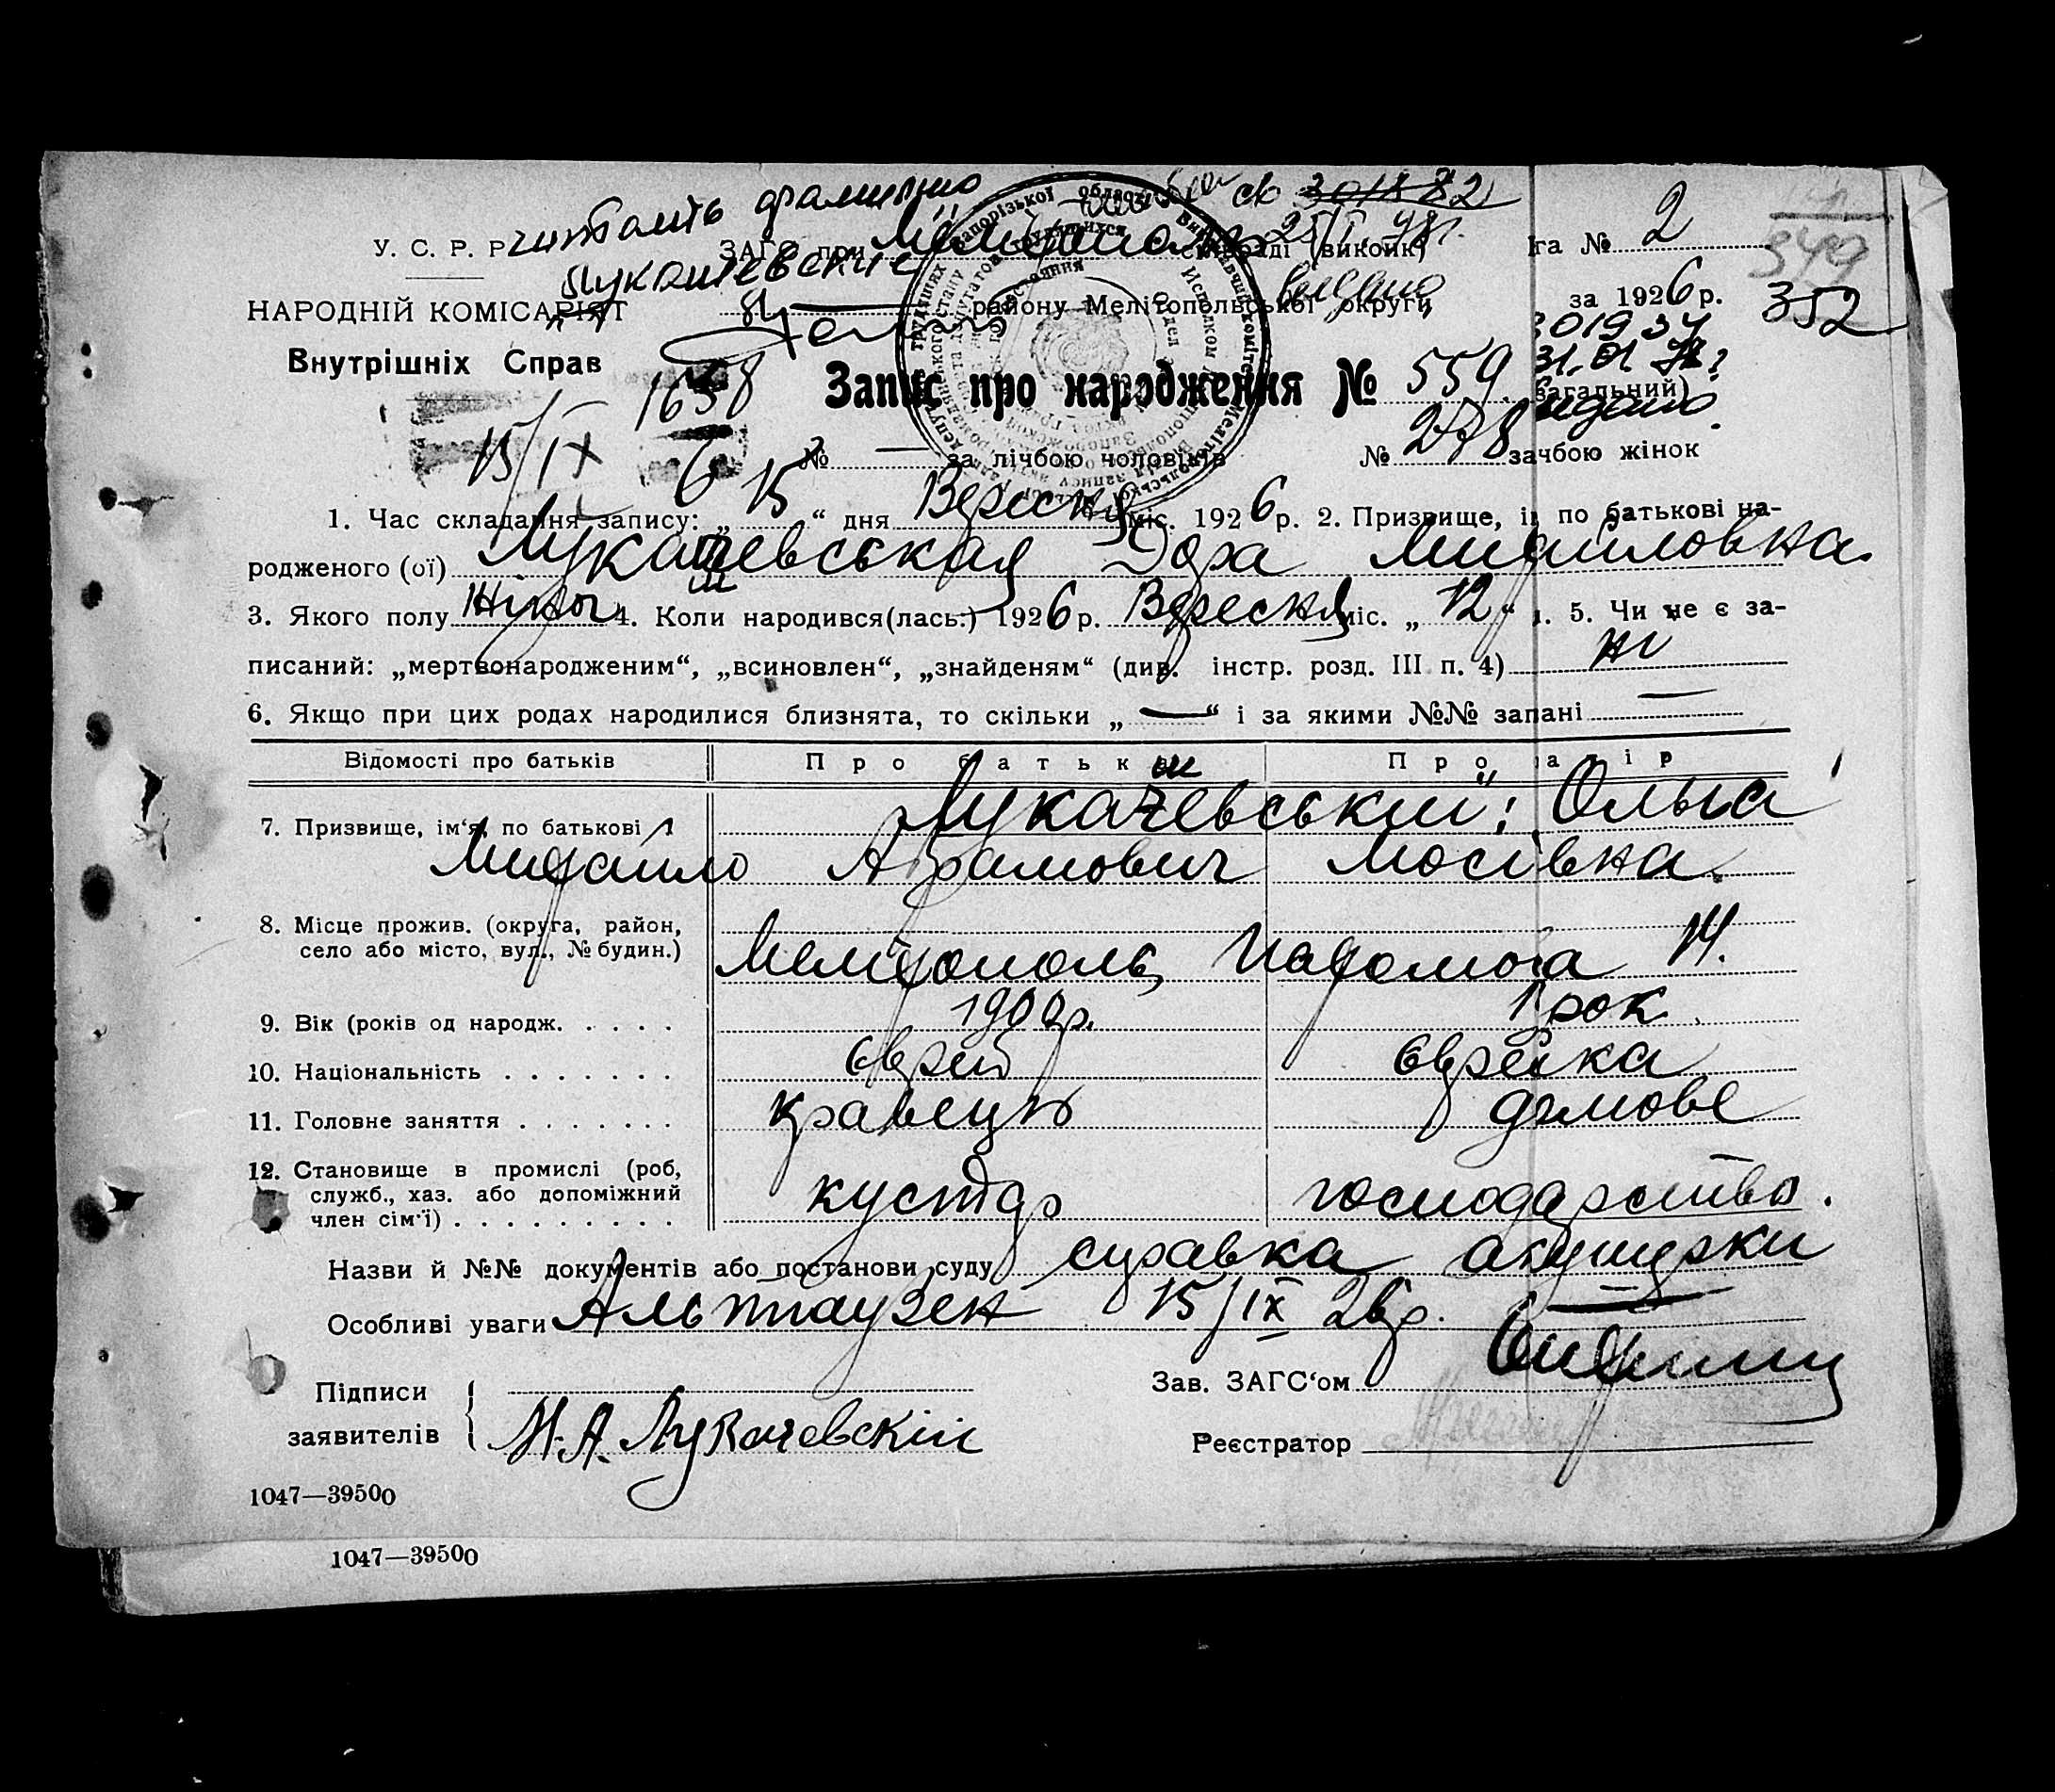 читать фамилию
Лукашевские
У. С. Р. Р.
НАРОДНІЙ КОМІСАРІЯТ
Внутрішніх Справ
ЗАГС при
районі (виконк)
району Мелітопольської округи
видано
25/I
№ 2
за 1926 р.
349
352
301934
31.01
видано
15/IX 6
1638
Запис про народження № 559 (загальний)
№ — за лічбою чоловіків
№ 278 за лічбою жінок
1. Час складання запису: „15“ дня Вересня міс. 1926 р. 2. Призвище, ім по батькові на-
родженого (ої) Лукачевськая Дора Михайловна.
ш
3. Якого полу жіноч 4. Коли народився(лась:) 1926 р. Вересня міс. „12“ д. 5. Чи не є за-
писаний: „мертвонародженим“, „всиновлен“, „знайденям“ (див. інстр. розд. III п. 4) ні
6. Якщо при цих родах народилися близнята, то скільки „—“ і за якими №№ запані —
Відомості про батьків Про батька Про матір
ш
7. Призвище, ім‘я, по батькові Лукачевський; Ольга
Михайло Абрамович Мосівна.
8. Місце прожив. (округа, район,
село або місто, вул., № будин.)
Мелітополь, 14.
9. Вік (років од народж. 1900 р. рок
10. Національність Єврей Єврейка
11. Головне заняття кравець домове
12. Становище в промислі (роб,
служб., хаз. або допоміжний
член сім‘ї)
кустар господарство.
Назви й №№ документів або постанови суду справка акушерки
Особливі уваги Альтгаузен 15/IX 26 р.
Підписи
заявителів
М. А. Лукачевскій
Зав. ЗАГС‘ом
Реєстратор
1047—39500
1047—39500